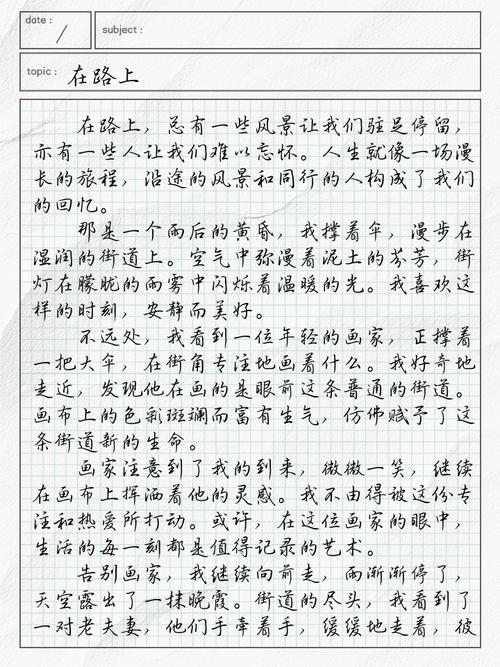 date :
subject :
topic : 在路上
在路上，总有一些风景让我们驻足停留，
亦有一些人让我们难以忘怀。人生就像一场漫
长的旅程，沿途的风景和同行的人构成了我们
的回忆。
那是一个雨后的黄昏，我撑着伞，漫步在
湿润的街道上。空气中弥漫着泥土的芬芳，街
灯在朦胧的雨雾中闪烁着温暖的光。我喜欢这
样的时刻，安静而美好。
不远处，我看到一位年轻的画家，正撑着
一把大伞，在街角专注地画着什么。我好奇地
走近，发现他在画的是眼前这条普通的街道。
画布上的色彩斑斓而富有生气，仿佛赋予了这
条街道新的生命。
画家注意到了我的到来，微微一笑，继续
在画布上挥洒着他的灵感。我不由得被这份专
注和热爱所打动。或许，在这位画家的眼中，
生活的每一刻都是值得记录的艺术。
告别画家，我继续向前走，雨渐渐停了，
天空露出了一抹晚霞。街道的尽头，我看到了
一对老夫妻，他们手牵着手，缓缓地走着，彼